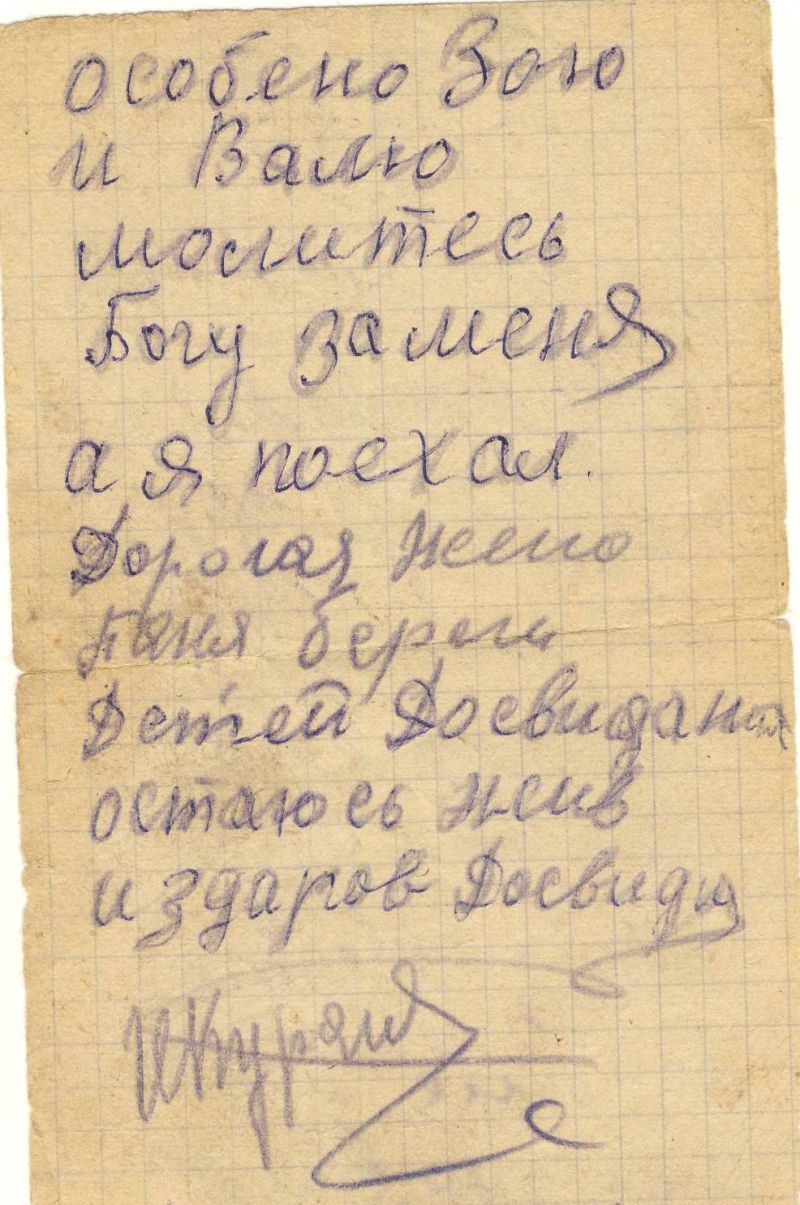 особено Зою
и Валю
молитесь
Богу за меня
а я поехал.
Дорогая Жено
Таня береги
Детей Досвидания
остаюсь жив
и здаров Досвидя